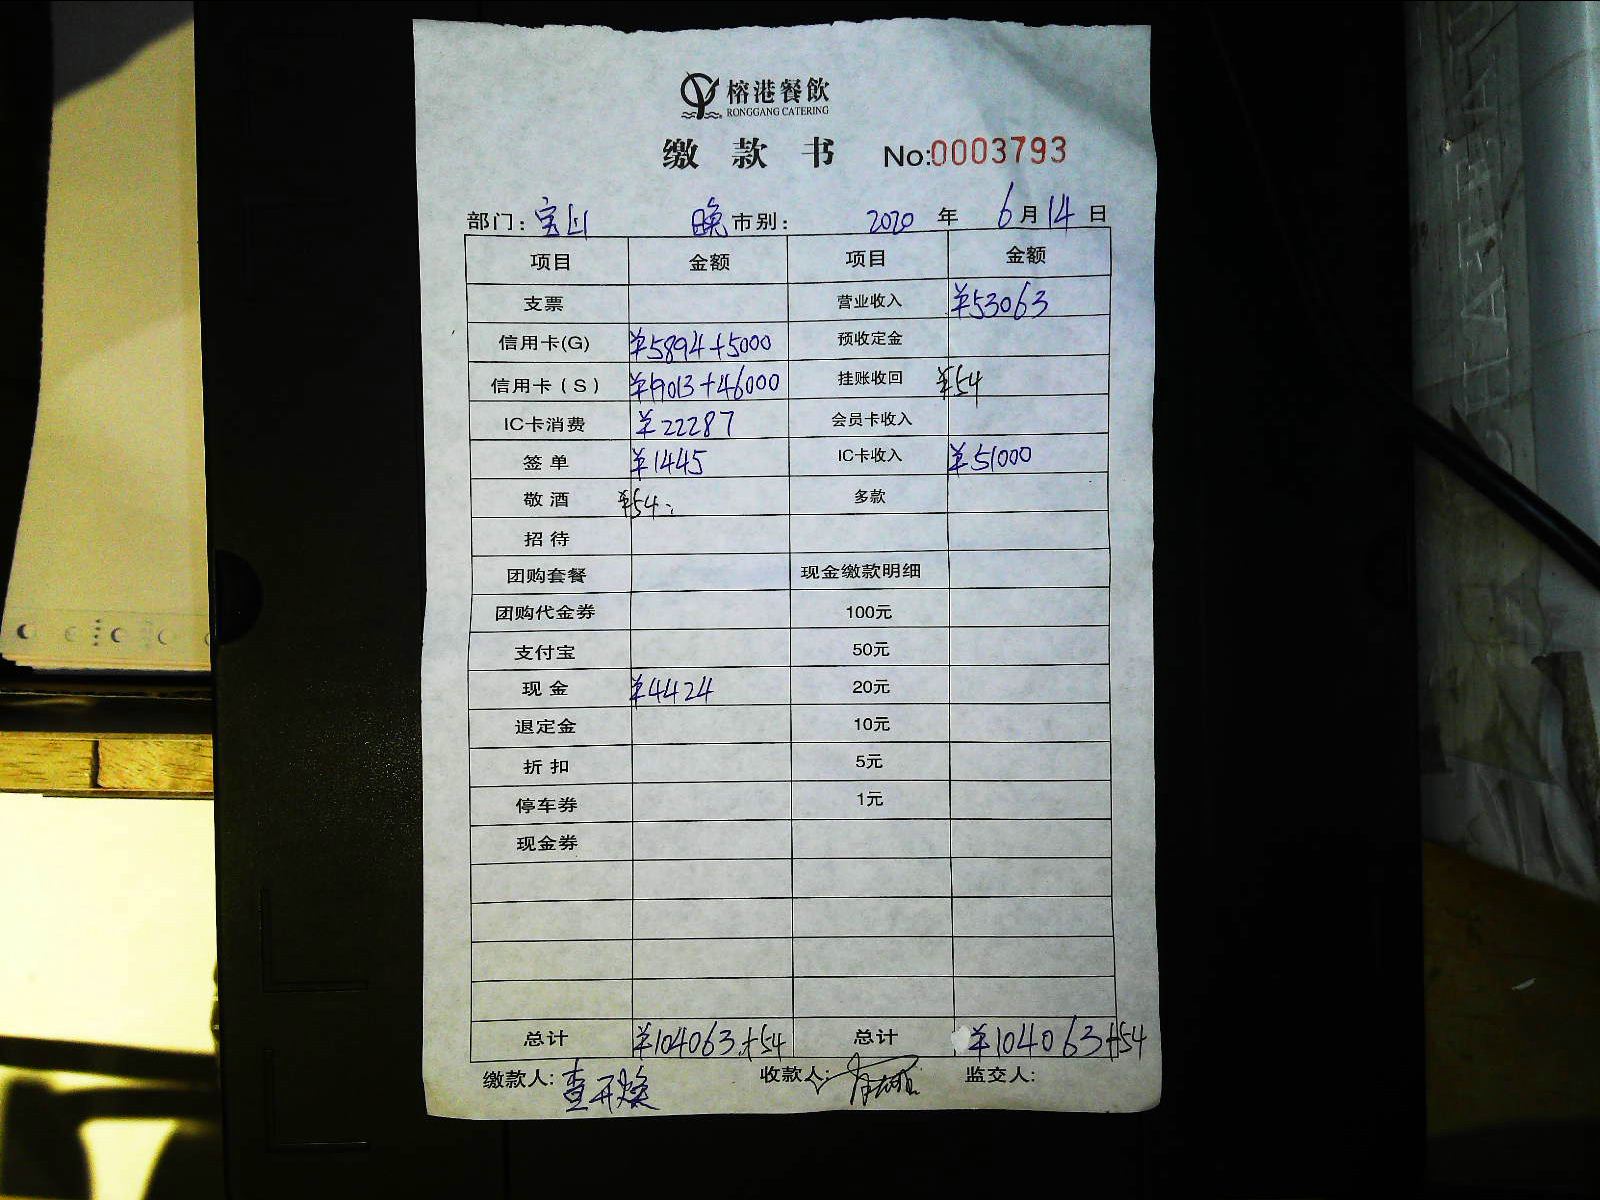 榕港餐飲
RONGGANG CATERING
缴款书 No:0003793
部门: 宝山 晚市别: 2020 年 6月14日
项目 金额 项目 金额
支票 营业收入 ¥53063
信用卡(G) ¥5894+5000 预收定金
信用卡(S) ¥19013+46000 挂账收回 ¥54
IC卡消费 ¥22287 会员卡收入
签单 ¥1445 IC卡收入 ¥51000
敬酒 ¥54. 多款
招待
团购套餐 现金缴款明细
团购代金券 100元
支付宝 50元
现金 ¥4424 20元
退定金 10元
折扣 5元
停车券 1元
现金券
总计 ¥104063.+54 总计 ¥104063+54
缴款人: 查开焕 收款人: 监交人: